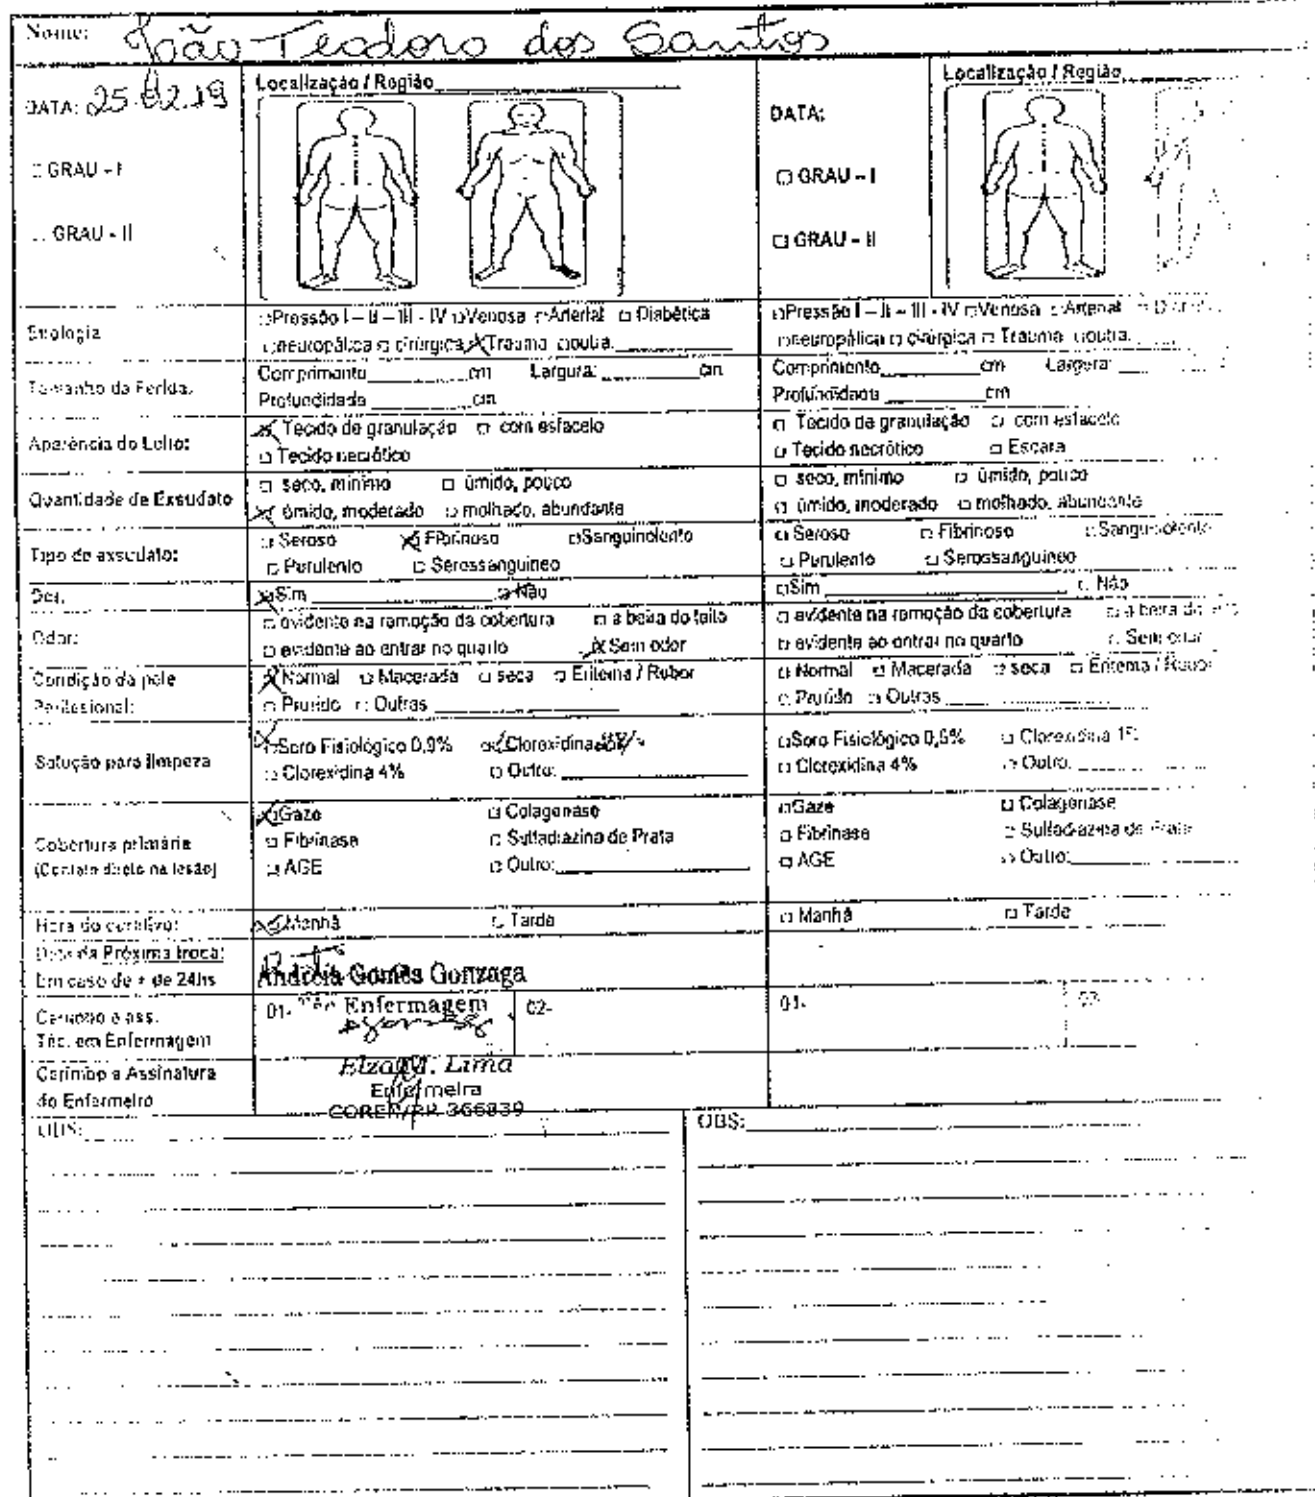 Nome: João Teodoro dos Santos
DATA: 25.02.19
Localização / Região
DATA:
Localização / Região
□ GRAU - I
□ GRAU – I
GRAU - II
□ GRAU – II
Etiologia
□Pressão I – II – III - IV □Venosa □Arterial □ Diabética
□neuropática □ cirúrgica X Trauma □outra.
□Pressão I – II – III - IV □Venosa □Arterial
□neuropática □ cirúrgica □ Trauma □outra.
Tamanho da Ferida.
Comprimento cm Largura: cm
Profundidade cm
Comprimento cm Largura:
Profundidade cm
Aparência do Leito:
X Tecido de granulação □ com esfacelo
□ Tecido necrótico
□ Tecido de granulação □ com esfacelo
□ Tecido necrótico □ Escara
Quantidade de Exsudato
□ seco, mínimo □ úmido, pouco
X úmido, moderado □ molhado, abundante
□ seco, mínimo □ úmido, pouco
□ úmido, moderado □ molhado, abundante
Tipo de exsudato:
□ Seroso X Fibrinoso □Sanguinolento
□ Purulento □ Serossanguineo
□ Seroso □ Fibrinoso □ Sanguinolento
□ Purulento □ Serossanguineo
Dor.
X Sim □ Não
□Sim □ Não
Odor:
□ evidente na remoção da cobertura □ a beira do leito
□ evidente ao entrar no quarto X Sem odor
□ evidente na remoção da cobertura □ a beira do leito
□ evidente ao entrar no quarto □ Sem odor
Condição da pele
Perilesional:
X Normal □ Macerada □ seca □ Eritema / Rubor
□ Prurido □ Outras
□ Normal □ Macerada □ seca □ Eritema / Rubor
□ Prurido □ Outros
Solução para limpeza
X Soro Fisiológico 0,9% X Clorexidina
□ Clorexidina 4% □ Outro:
□Soro Fisiológico 0,9% □ Clorexidina 1%
□ Clorexidina 4% □ Outro:
Cobertura primária
(Contato direto na lesão)
X Gaze □ Colagenase
□ Fibrinase □ Sulfadiazina de Prata
□ AGE □ Outro:
□Gaze □ Colagenase
□ Fibrinase □ Sulfadiazina de Prata
□ AGE □ Outro:
Hora do curativo:
X Manhã □ Tarde
□ Manhã □ Tarde
Data da Próxima troca:
Em caso de + de 24hs
Andréia Gomes Gonzaga
Carimbo e ass.
Téc. em Enfermagem
01- Téc Enfermagem 02-
01- 02-
Carimbo e Assinatura
do Enfermeiro
Elza M. Lima
Enfermeira
COREN/PR 366839
OBS:
OBS: